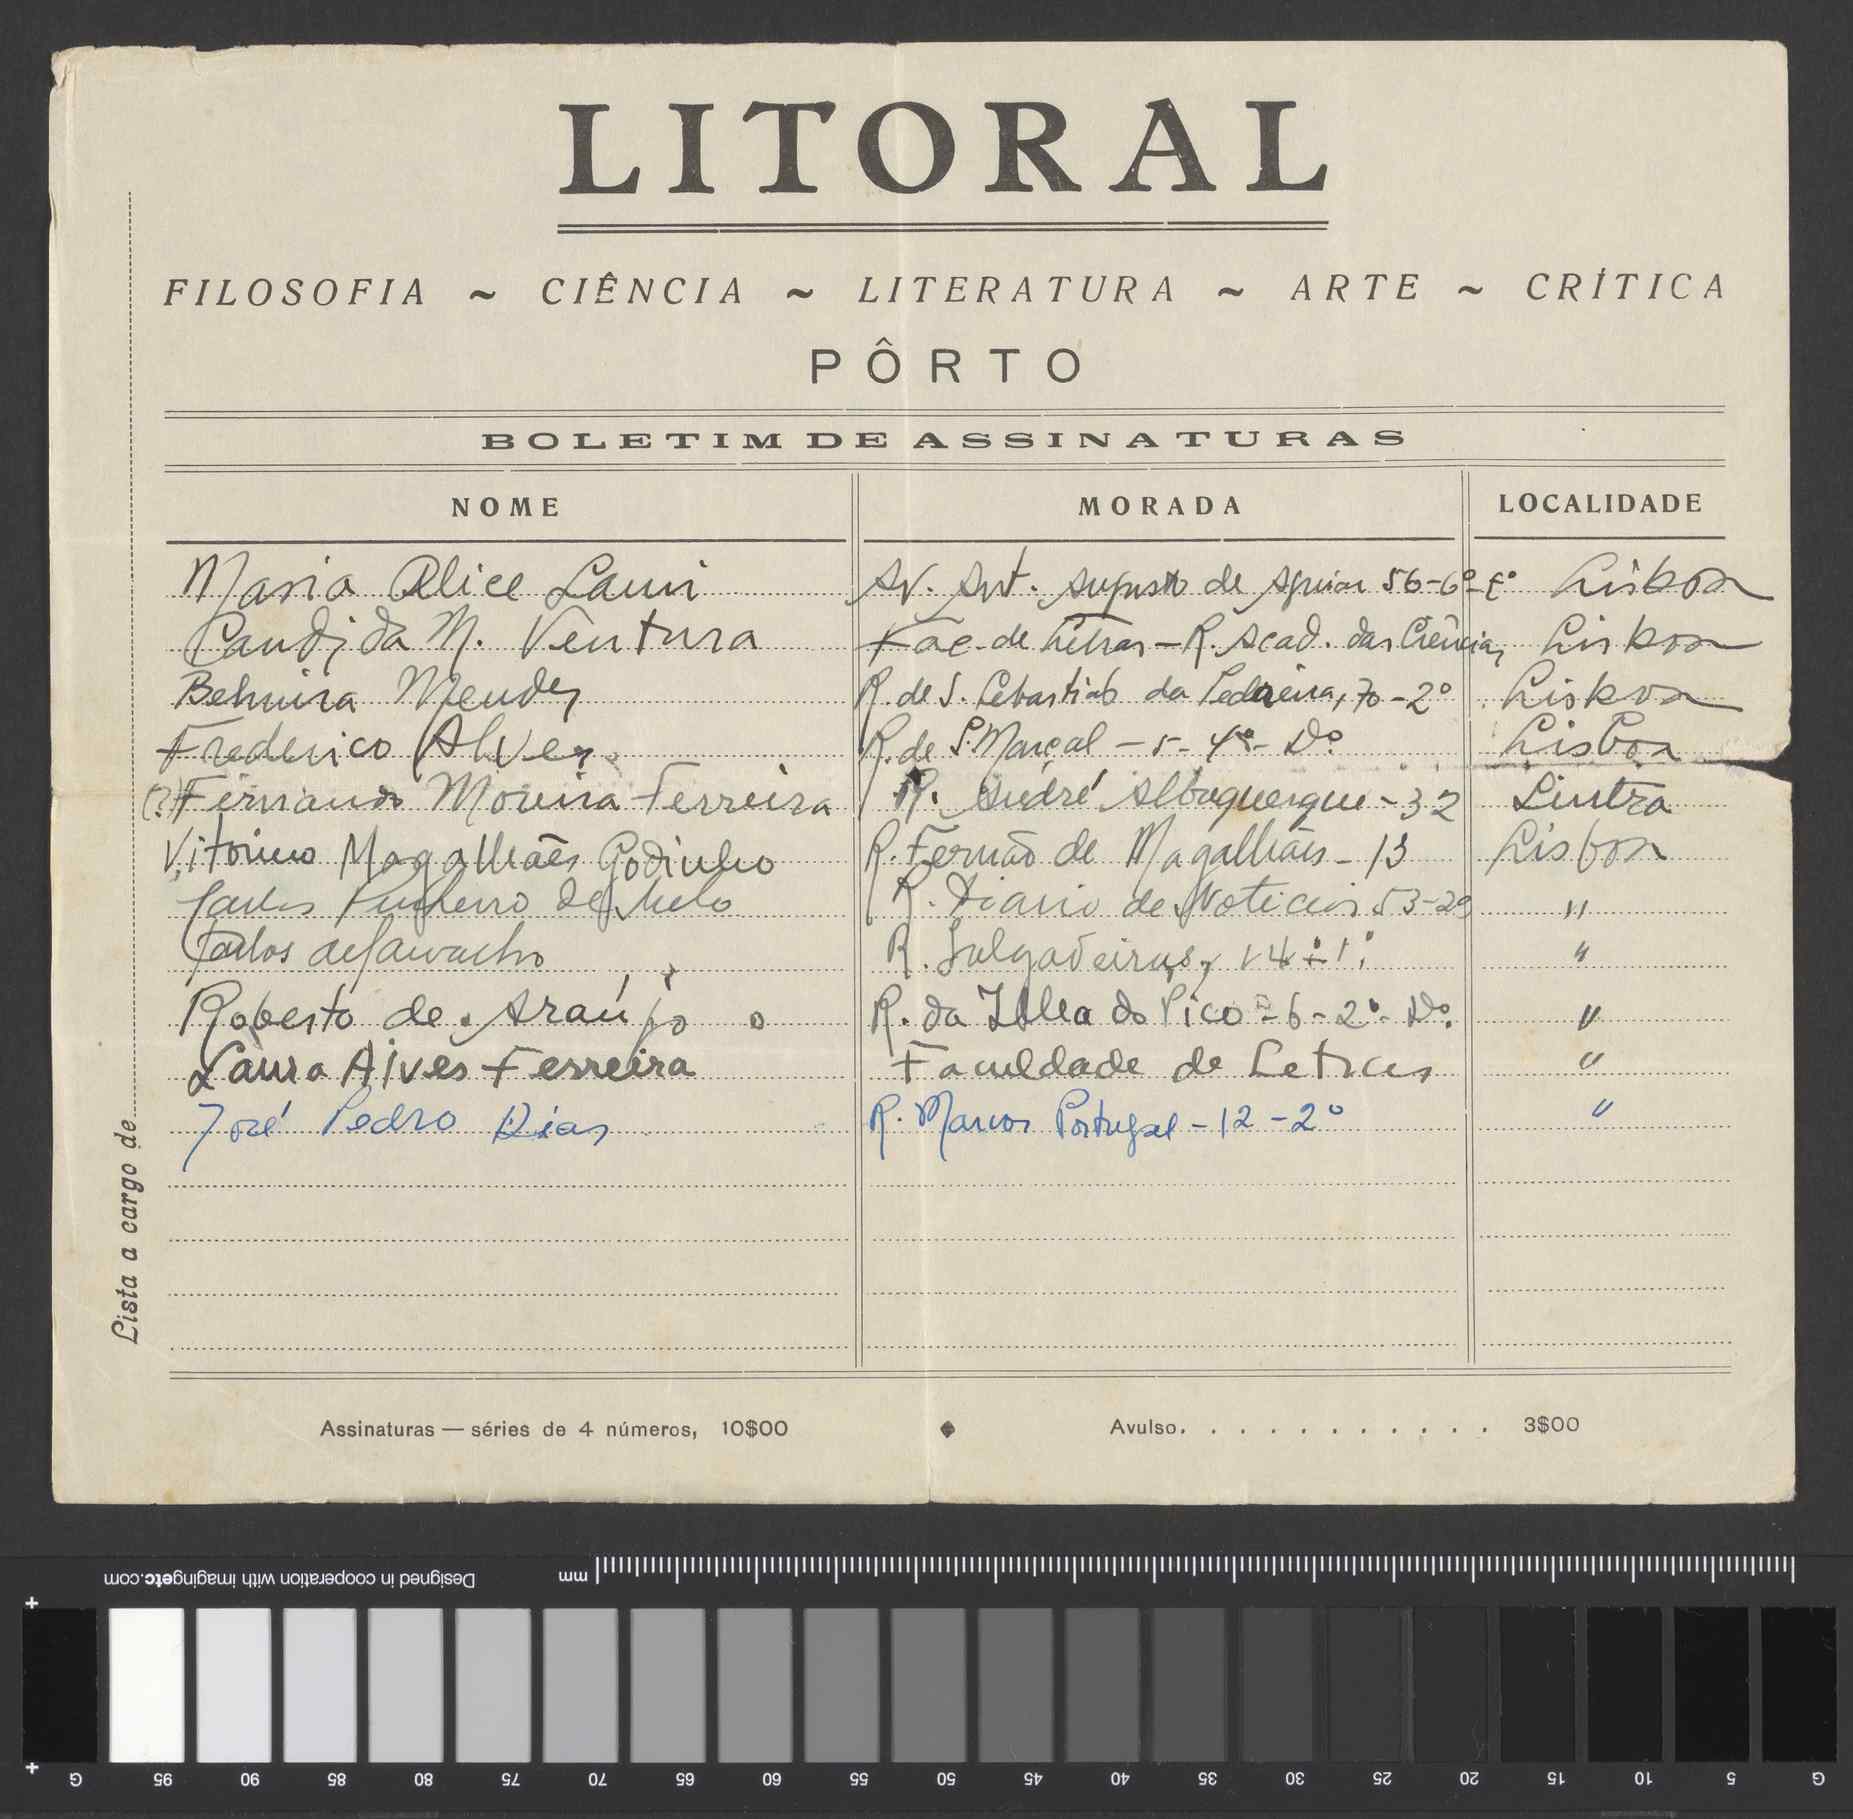 LITORAL
FILOSOFIA ~ CIÊNCIA ~ LITERATURA ~ ARTE ~ CRÍTICA
PÔRTO
BOLETIM DE ASSINATURAS
NOME MORADA LOCALIDADE
Maria Alice Lami Av. Ant. Augusto de Aguiar 56-6º-E º Lisboa
Candida M. Ventura Fac. de Letras - R. Acad. das Ciências Lisboa
Belmira Mendes R. de S. Sebastião da Pedreira, 70-2º Lisboa
Frederico Alves R. de S. Marçal - 5- 4º- Dº Lisboa
(?) Fernando Moreira Ferreira R. André Albuquerque - 32 Sintra
Vitorino Magalhães Godinho R. Fernão de Magalhães - 13 Lisboa
Carlos de Melo R. Diario de Noticias 53-2º "
Carlos de Carvalho R. Salgadeiras, 14-1º "
Roberto de Araújo R. da Ilha do Pico - 6 - 2º- Dº. "
Laura Alves Ferreira Faculdade de Letras "
José Pedro Dias R. Marcos Portugal - 12 - 2º "
Lista a cargo de
Assinaturas — séries de 4 números, 10$00 Avulso. . . . . . . . . . . . 3$00
Designed in cooperation with imagingetc.com mm
G 95 90 85 80 75 70 65 60 55 50 45 40 35 30 25 20 15 10 5 G